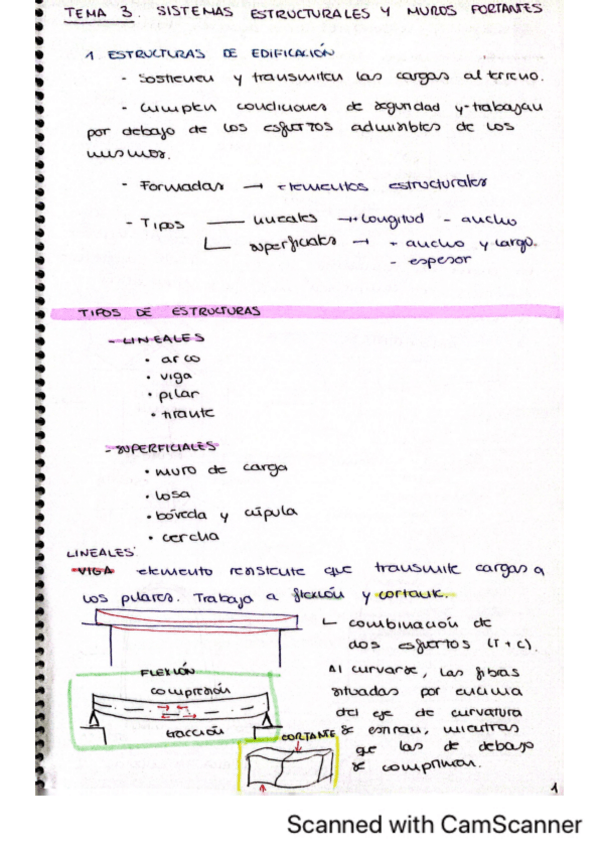 TEMA 3. SISTEMAS ESTRUCTURALES Y MUROS PORTANTES
1. ESTRUCTURAS DE EDIFICACIÓN
- Sostienen y transmiten las cargas al terreno.
- Cumplen condiciones de seguridad y trabajan
por debajo de los esfuerzos admisibles de los
mismos.
- Formadas → elementos estructurales
- Tipos — lineales → + longitud - ancho
superficiales → + ancho y largo.
- espesor
TIPOS DE ESTRUCTURAS
- LINEALES
• arco
• viga
• pilar
• tirante
- SUPERFICIALES
• muro de carga
• losa
• bóveda y cúpula
• cercha
LINEALES:
VIGA elemento resistente que transmite cargas a
los pilares. Trabaja a flexión y cortante.
combinación de
dos esfuertos (T + C).
FLEXIÓN
compresión
tracción
CORTANTE
Al curvarse, las fibras
situadas por encima
del eje de curvatura
se estiran, mientras
que las de debajo
se comprimen.
1
Scanned with CamScanner